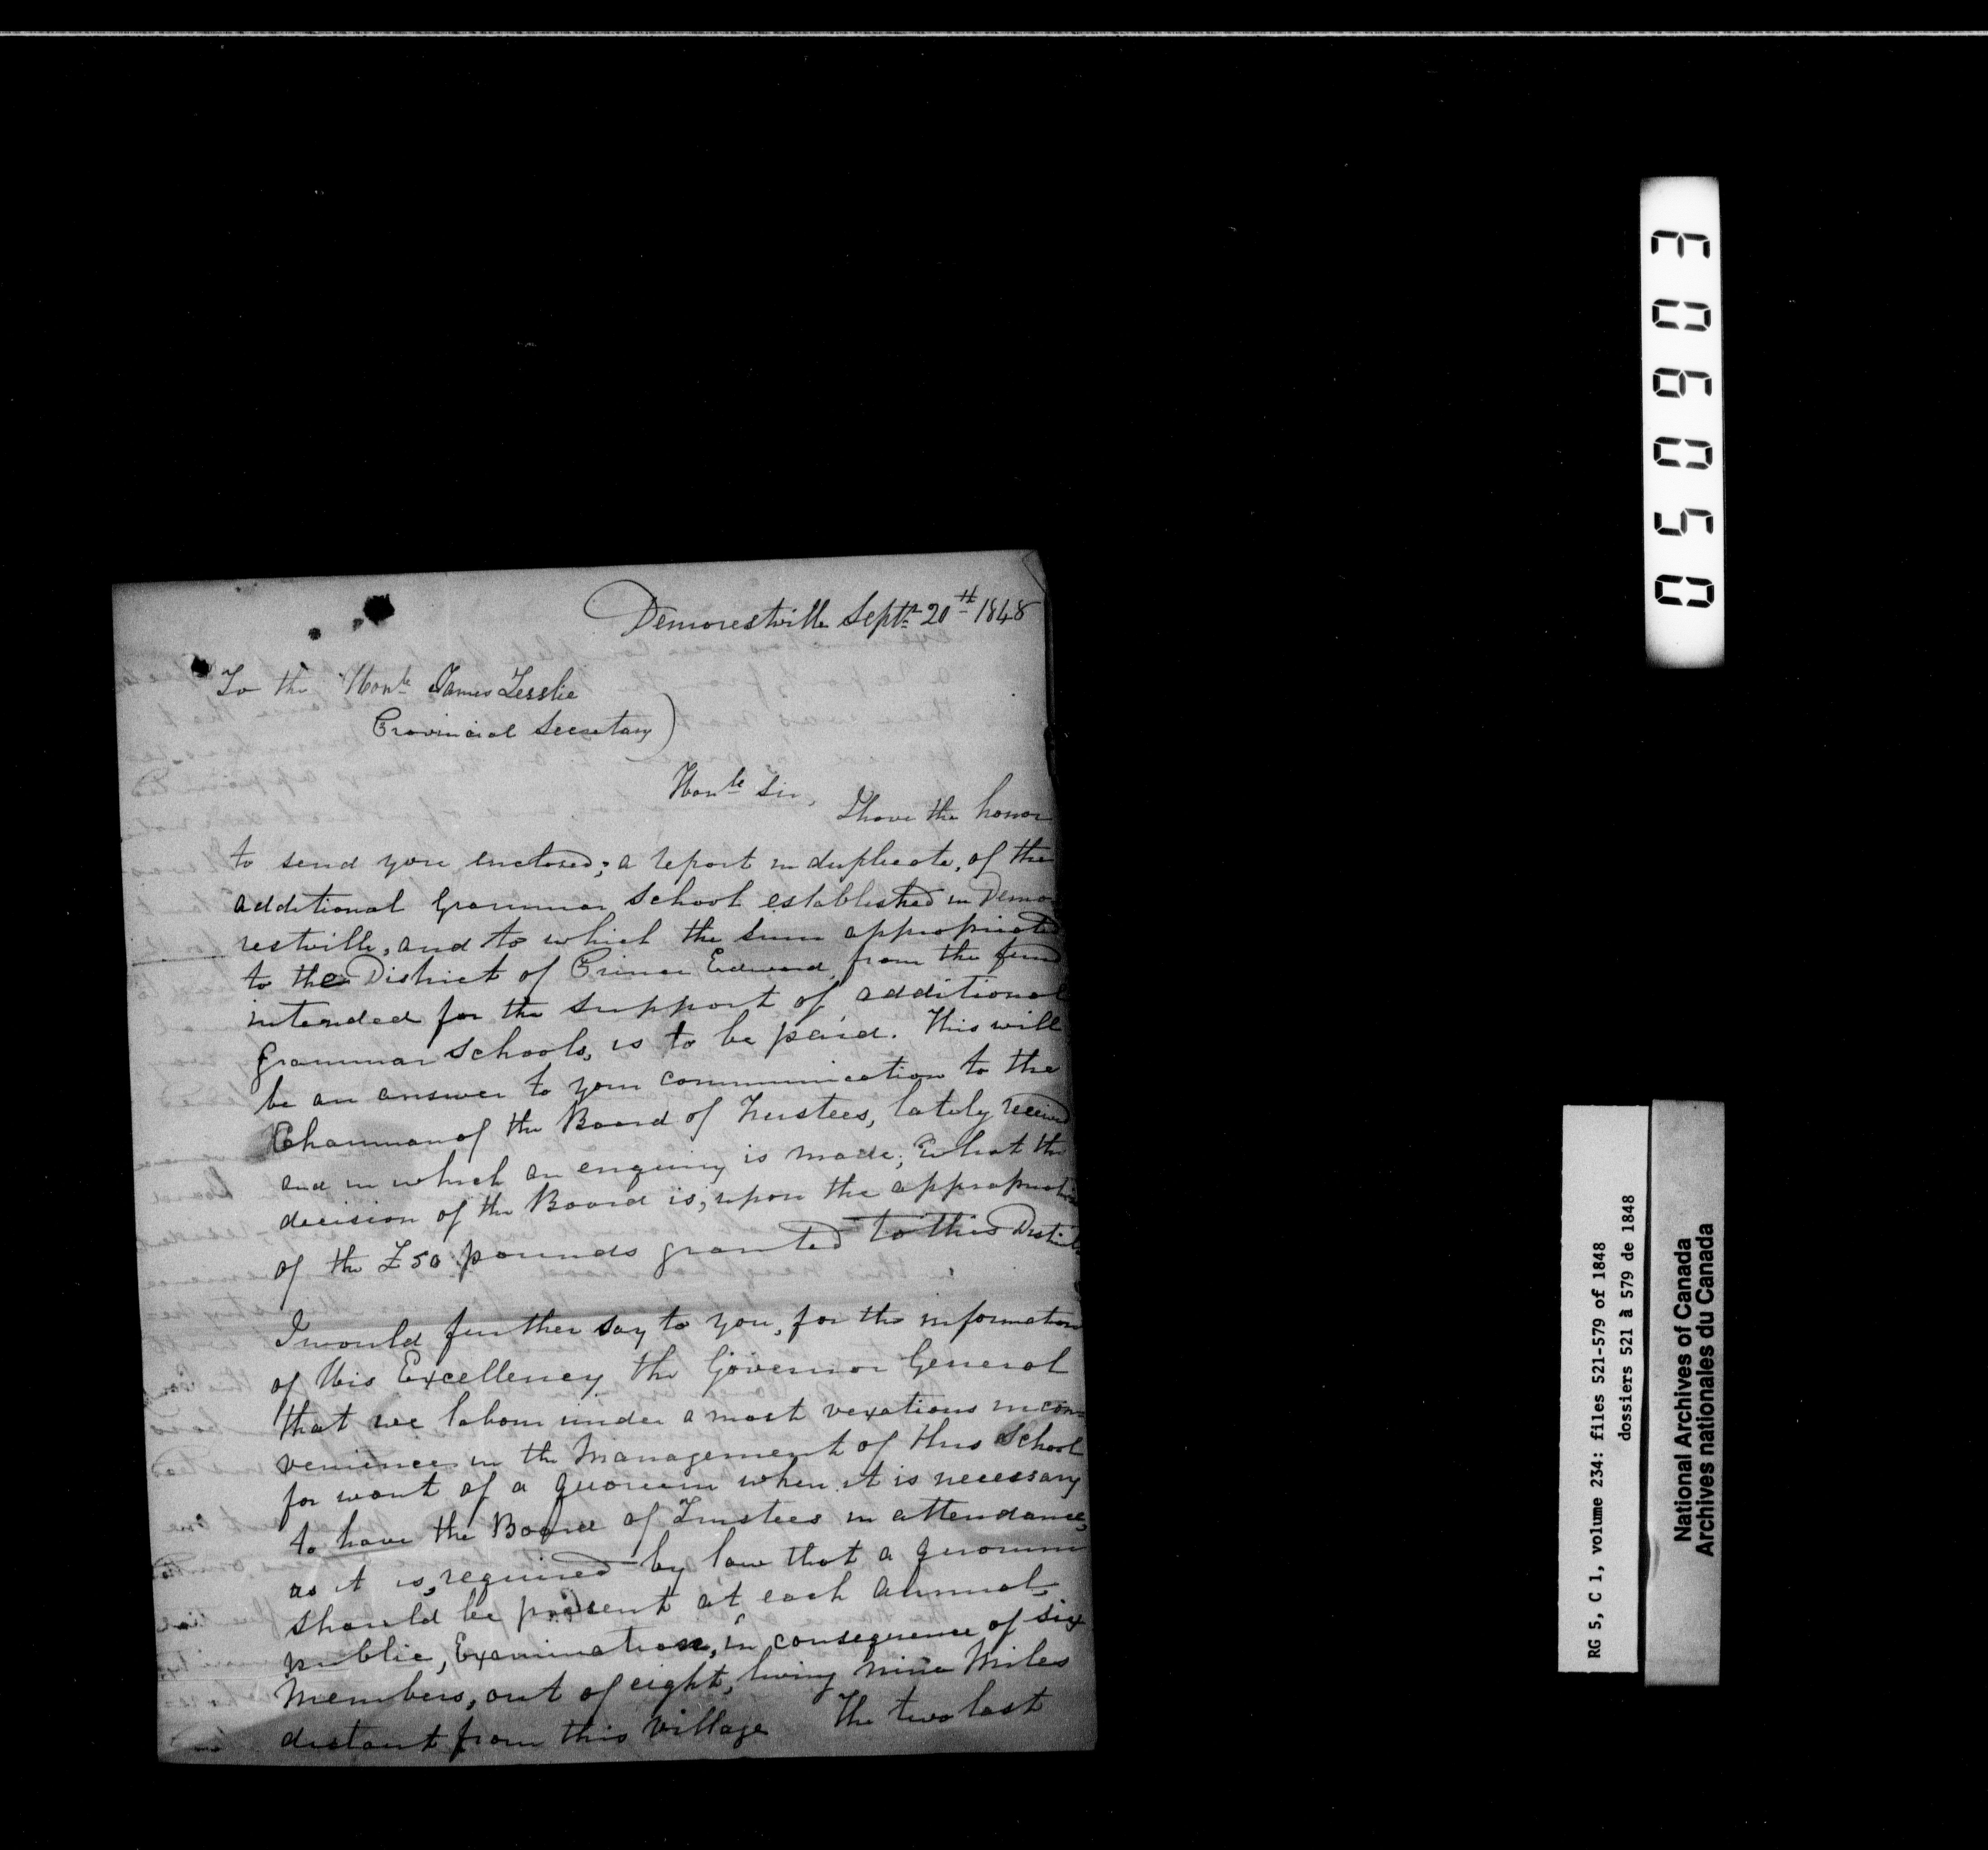 Demorestville Septr 20th 1848
To the Honle James Lesslie
Provincial Secretary)
Honle Sir,
I have the honor
to send you enclosed; a report in duplicate, of the
additional Grammar School established in Demo
restville, and to which the sum appropriated
to the District of Prince Edward, from the fund
intended for the support of additional
Grammar Schools, is to be paid. This will
be an answer to your communication to the
Chairman of the Board of Trustees, lately received
and in which an enquiry is made; What the
decision of the Board is, upon the appropriation
of the £50 pounds granted to this District
I would further say to you, for the information
of His Excellency the Governor General
that we labour under a most vexatious incon-
venience in the management of this School
for want of a quorum when it is necessary
to have the Board of Trustees in attendance,
as it is, required by law that a quorum
should be present at each annual
public, Examination, in consequence of six
Members, out of eight, living nine Miles
distant from this Village The two last
030903
RG 5, C 1, volume 234: files 521-579 of 1848
dossiers 521 à 579 de 1848
National Archives of Canada
Archives nationales du Canada